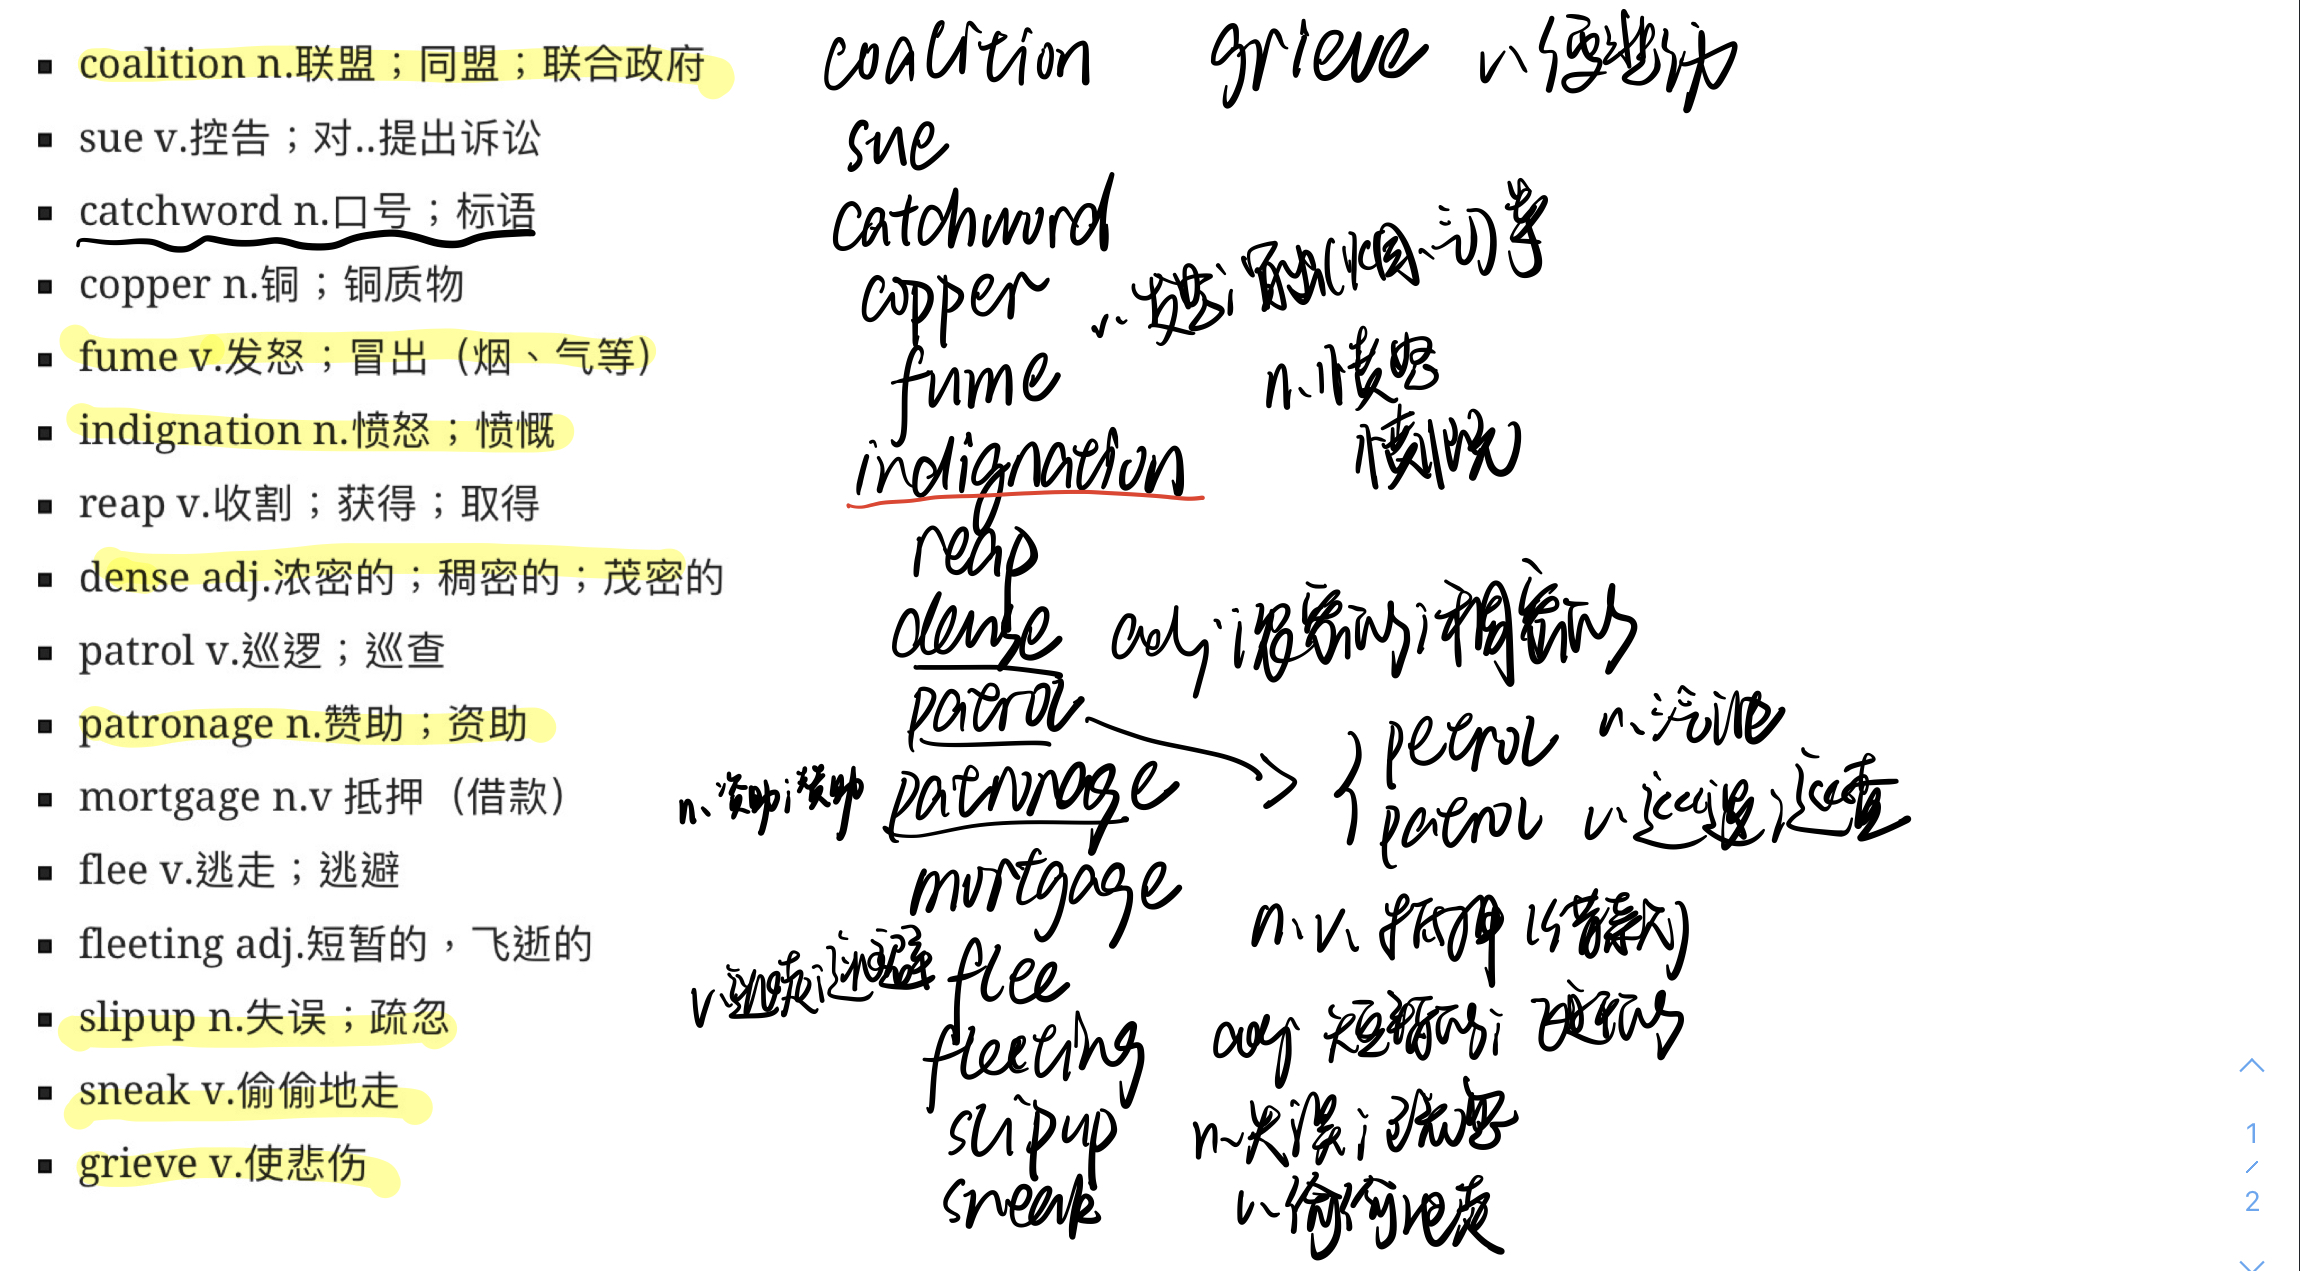 coalition n.联盟；同盟；联合政府
sue v.控告；对..提出诉讼
catchword n.口号；标语
copper n.铜；铜质物
fume v.发怒；冒出（烟、气等）
indignation n.愤怒；愤慨
reap v.收割；获得；取得
dense adj.浓密的；稠密的；茂密的
patrol v.巡逻；巡查
patronage n.赞助；资助
mortgage n.v 抵押（借款）
flee v.逃走；逃避
fleeting adj.短暂的，飞逝的
slipup n.失误；疏忽
sneak v.偷偷地走
grieve v.使悲伤
coalition grieve v.使悲伤
sue
catchword
copper
v.发怒；冒出(烟、气)等
fume n.愤怒
愤慨
indignation
reap
dense adj 浓密的；稠密的
patrol
petrol n.汽油
patrol v.巡逻；巡查
n.资助；赞助 patronage
mortgage n.v.抵押(借款)
v.逃走；逃避 flee
fleeting adj 短暂的；飞逝的
slipup n.失误；疏忽
sneak v.偷偷地走
1
/
2